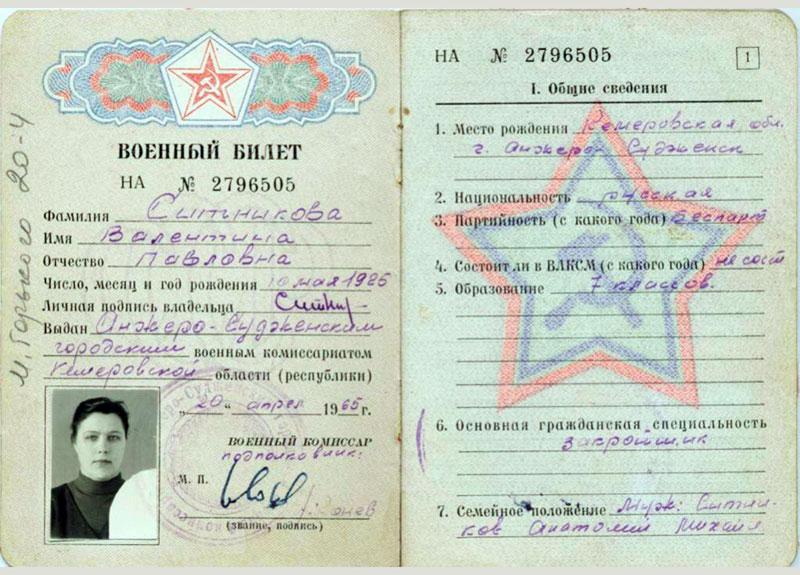 ВОЕННЫЙ БИЛЕТ
НА № 2796505
Фамилия Ситникова
Имя Валентина
Отчество Павловна
Число, месяц и год рождения 10 мая 1925
Личная подпись владельца Ситник
Выдан Анжеро-Судженским
городским военным комиссариатом
Кемеровской области (республики)
„20“ апрел 1965 г.
ВОЕННЫЙ КОМИССАР
подполковник:
М. П.
(звание, подпись)
М. Горького 20-4
НА № 2796505
1
I. Общие сведения
1. Место рождения Кемеровская обл.
г. Анжеро Судженск
2. Национальность русская
3. Партийность (с какого года) беспарт
4. Состоит ли в ВЛКСМ (с какого года) не сост
5. Образование 7 классов.
6. Основная гражданская специальность
закройщик
7. Семейное положение Муж: Ситни-
ков Анатолий Михайл